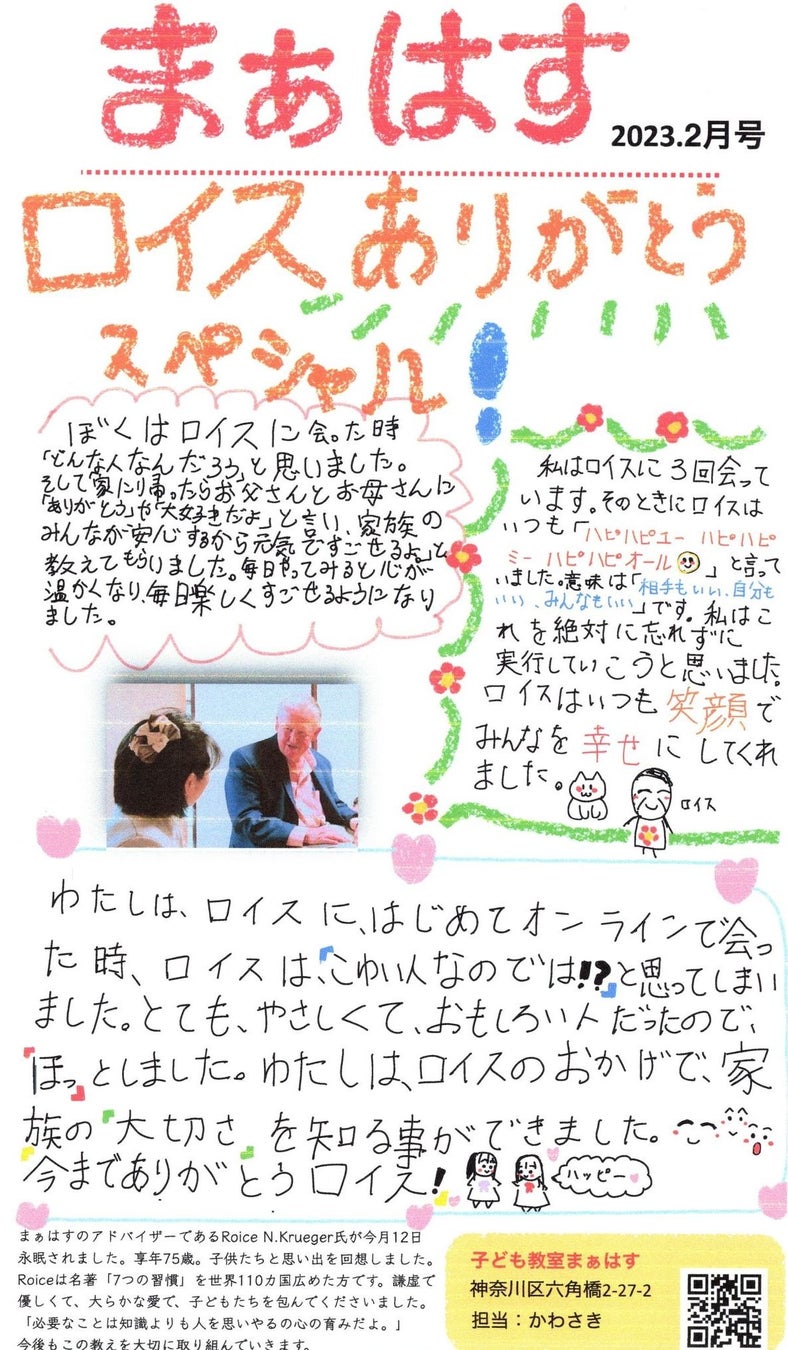 まぁはす
2023.2月号
ロイスありがとう
スペシャル!
ぼくはロイスに会った時
「どんな人なんだろう」と思いました。
そして家に帰ったらお父さんとお母さんに
「ありがとう」や「大好きだよ」と言い、家族の
みんなが安心するから元気ですごせるよ」と
教えてもらいました。毎日やってみると心が
温かくなり、毎日楽しくすごせるようになり
ました。
私はロイスに3回会って
います。そのときにロイスは
いつも「ハピハピユー ハピハピ
ミー ハピハピオール」と言って
いました。意味は「相手もいい、自分も
いい、みんなもいい」です。私はこ
れを絶対に忘れずに
実行していこうと思いました。
ロイスはいつも笑顔で
みんなを幸せにしてくれ
ました。
ロイス
わたしは、ロイスに、はじめてオンラインで会っ
た時、ロイスは、「こわい人なのでは!?」と思ってしまい
ました。とても、やさしくて、おもしろい人だったので、
「ほっ」としました。わたしは、ロイスのおかげで、家
族の「大切さ」を知る事ができました。
今までありがとうロイス!
ハッピー
まぁはすのアドバイザーであるRoice N.Krueger氏が今月12日
永眠されました。享年75歳。子供たちと思い出を回想しました。
Roiceは名著「7つの習慣」を世界110カ国広めた方です。謙虚で
優しくて、大らかな愛で、子どもたちを包んでくださいました。
「必要なことは知識よりも人を思いやるの心の育みだよ。」
今後もこの教えを大切に取り組んでいきます。
子ども教室まぁはす
神奈川区六角橋2-27-2
担当：かわさき